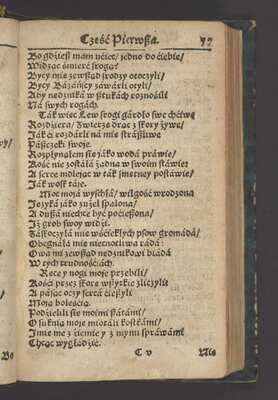 Część Pierwsza.
77
Bo gdzieß mam uciec/ jedno do ciebie/
Widząc śmierć srogą?
Byćy mie zewsząd srodzy otoczyli/
Byćy Bazáńscy záwárli otyli/
Aby nędzniká w sztukách roznośili
Ná swych rogách.
Ták wiec Lew srogi gárdło swe chćiwe
Rozdźiera/ Zwierze drąc z skory żywe/
Jákći rozdárli ná mie strászliwą
Pászczekę swoje.
Rozpłynąłem sie jáko wodá práwie/
Kość nie zostáłá żadna w swoim stáwie:
A serce molejąc w ták smętney postáwie/
Ják wosk táje.
Moc mojá wyschłá/ wilgość wrodzona
Języká jáko żużel spalona/
A duszá niechce być pocieszona/
Jż grob swoy widźi.
Záskoczyłá mie wściekłych psow gromádá/
Obegnáłá mie niecnotliwa rádá:
Owa mi zewsząd nędznikowi biádá
W tych trudnośćiách.
Ręce y nogi moje przebili/
Kośći przez skorę wszytkie zliczyli/
A pásąc oczy sercá ćieszyli
Moją boleśćią.
Podzielili sie moimi szátámi/
O suknią moję miotáli kostkámi/
Imie me z źiemie y z mymi spráwámi
Chcąc wygłádźić.
C v
Nie
Bo